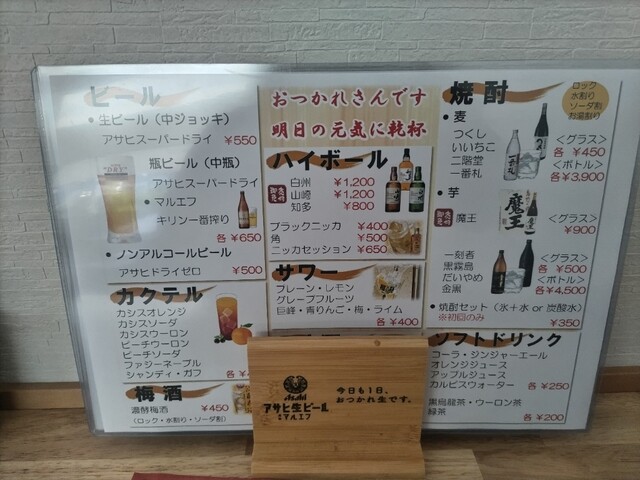 ビール
• 生ビール（中ジョッキ）
アサヒスーパードライ ¥550
瓶ビール（中瓶）
アサヒスーパードライ
• マルエフ
キリン一番搾り
各 ¥650
• ノンアルコールビール
アサヒドライゼロ ¥500
カクテル
カシスオレンジ
カシスソーダ
カシスウーロン
ピーチウーロン
ピーチソーダ
ファジーネーブル
シャンディ・ガフ
各
梅酒
濃醇梅酒 ¥450
（ロック・水割り・ソーダ割）
おつかれさんです
明日の元気に乾杯
ハイボール
白州 ¥1,200
山崎 ¥1,200
知多 ¥800
ブラックニッカ ¥400
角 ¥500
ニッカセッション ¥650
サワー
プレーン・レモン
グレープフルーツ
巨峰・青りんご・梅・ライム
各 ¥400
焼酎
ロック
水割り
ソーダ割
お湯割り
• 麦
つくし
いいちこ
二階堂
一番札
＜グラス＞
各 ¥450
＜ボトル＞
各¥3,900
• 芋
魔王
魔王
＜グラス＞
¥900
一刻者
黒霧島
だいやめ
金黒
＜グラス＞
各 ¥500
＜ボトル＞
各¥4,500
• 焼酎セット（氷＋水 or 炭酸水）
※初回のみ ¥350
ソフトドリンク
コーラ・ジンジャーエール
オレンジジュース
アップルジュース
カルピスウォーター 各 ¥250
黒烏龍茶・ウーロン茶
緑茶 各 ¥200
Asahi
アサヒ生ビール
マルエフ
今日も1日、
おつかれ生です。